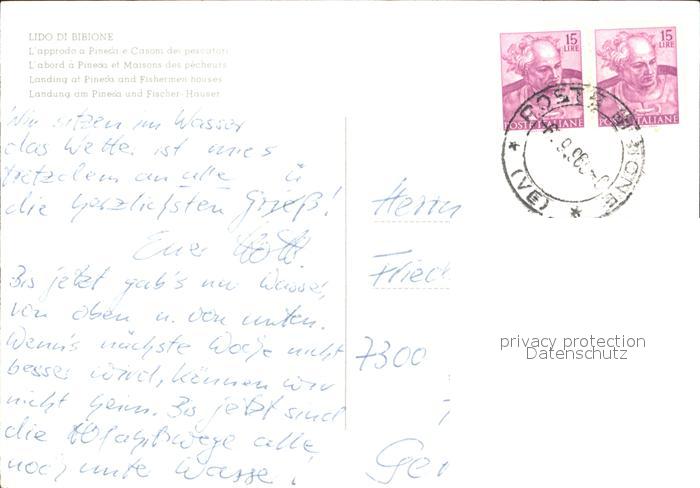 LIDO DI BIBIONE
L'approdo a Pineda e Casoni dei pescatori
L'abord à Pineda et Maisons des pêcheurs
Landing at Pineda and Fishermen houses
Landung am Pineda und Fischer-Hauser
15
LIRE
POSTE ITALIANE
15
LIRE
POSTE ITALIANE
POSTE BIBIONE
(VE)
Wir sitzen im Wasser
das Wetter ist mies
trotzdem an alle
die herzlichsten Grüße!
Euer
Bis jetzt gab's nur Wasser,
von oben u. von unten.
Wenn's nächste Woche nicht
besser wird, können wir
nicht heim. Bis jetzt sind
die alle
noch unter Wasser!
Herrn
Fried
7300
Ger
privacy protection
Datenschutz